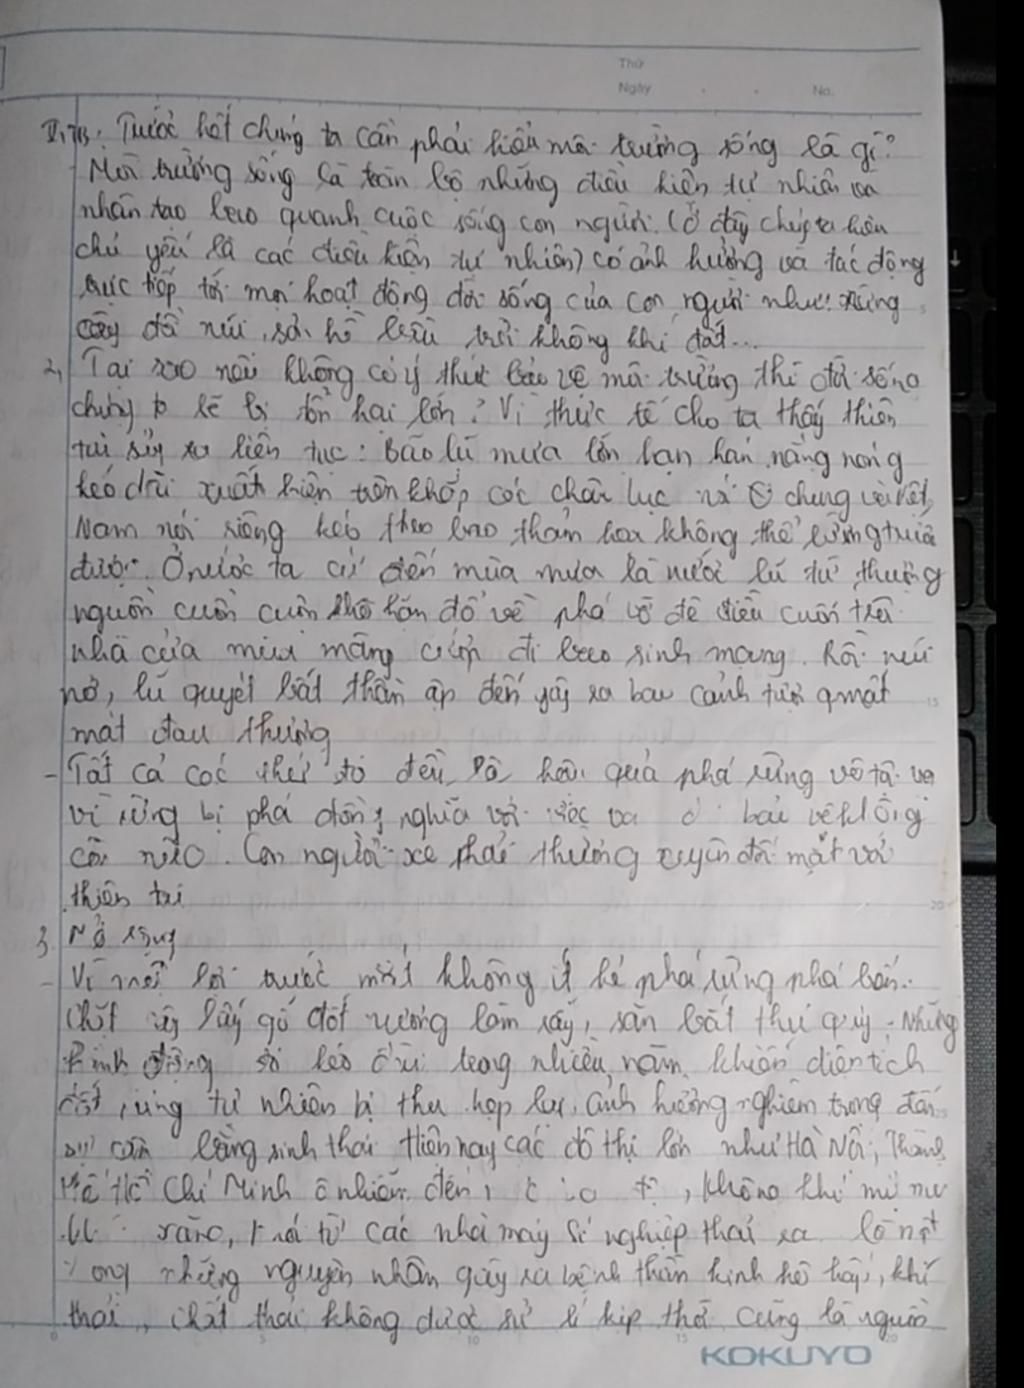 Thứ
Ngày No.
II, TB: Trước hết chúng ta cần phải hiểu môi trường sống là gì?
- Môi trường sống là toàn bộ những điều kiện tự nhiên và
nhân tạo bao quanh cuộc sống con người. (Ở đây chúng ta hiểu
chủ yếu là các điều kiện tự nhiên) có ảnh hưởng và tác động
trực tiếp tới mọi hoạt động đời sống của con người như: rừng
cây đồi núi, sông hồ bầu trời không khí đất...
2, Tại sao nếu không có ý thức bảo vệ môi trường thì đời sống
chúng ta sẽ bị tổn hại lớn? Vì thực tế cho ta thấy thiên
tai xảy ra liên tục: Bão lũ mưa lớn hạn hán nắng nóng
kéo dài xuất hiện trên khắp các châu lục nói chung và Việt
Nam nói riêng kéo theo bao thảm họa không thể lường trước
được. Ở nước ta cứ đến mùa mưa là nước lũ từ thượng
nguồn cuồn cuộn đổ về phá vỡ đê điều cuốn trôi
nhà cửa mùa màng cướp đi bao sinh mạng. Rồi núi
nở, lũ quyét bất thần ập đến gây ra bao cảnh tượng mất
mát đau thương
- Tất cả các thứ đó đều là hậu quả phá rừng vô tội vạ
vì rừng bị phá đồng nghĩa với việc bảo vệ không
còn nữa. Con người sẽ phải thường xuyên đối mặt với
thiên tai
3. Mở rộng
- Vì mối lợi trước mắt không ít kẻ phá rừng phá bán..
chặt cây lấy gỗ đốt nương làm rẫy, săn bắt thú quý. Những
hành động đó kéo dài trong nhiều năm khiến diện tích
đất rừng tự nhiên bị thu hẹp lại, ảnh hưởng nghiêm trọng đến
sự cân bằng sinh thái Hiện nay các đô thị lớn như Hà Nội, Thành
Phố Hồ Chí Minh ô nhiễm đến, không khí mù mư
xăng, khói từ các nhà máy sí nghiệp thải ra là một
trong những nguyên nhân gây ra bệnh thần kinh hô hấp, khí
thải, chất thải không được xử lí kịp thời cũng là nguồn
KOKUYO